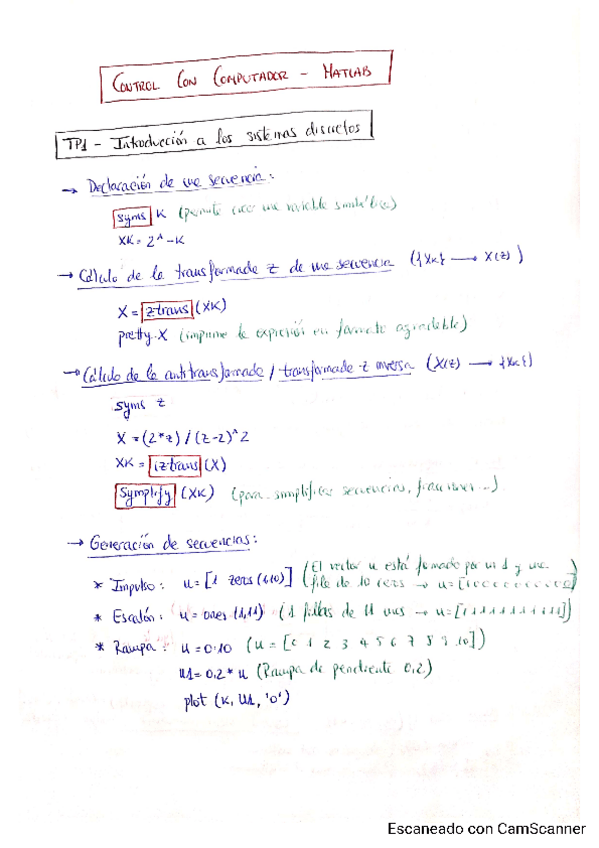 CONTROL CON COMPUTADOR - MATLAB
TP1 - Introducción a los sistemas discretos
→ Declaración de una secuencia:
syms K (permite crear una variable simbólica)
XK = 2^-K
→ Cálculo de la transformada z de una secuencia ({XK} → X(z))
X = ztrans (XK)
pretty X (imprime la expresión en formato agradable)
→ Cálculo de la antitransformada / transformada z inversa (X(z) → {XK})
syms z
X = (2*z) / (z-2)^2
XK = iztrans (X)
Symplify (XK) (para simplificar secuencias, fracciones...)
→ Generación de secuencias:
* Impulso: u = [1 zeros (1,10)] (El vector u está formado por un 1 y una
fila de 10 ceros → u = [1 0 0 0 0 0 0 0 0 0 0])
* Escalón: u = ones (1,11) (1 fila de 11 unos → u = [1 1 1 1 1 1 1 1 1 1 1])
* Rampa: u = 0:10 (u = [0 1 2 3 4 5 6 7 8 9 10])
u1 = 0.2 * u (Rampa de pendiente 0.2)
plot (K, u1, 'o')
Escaneado con CamScanner